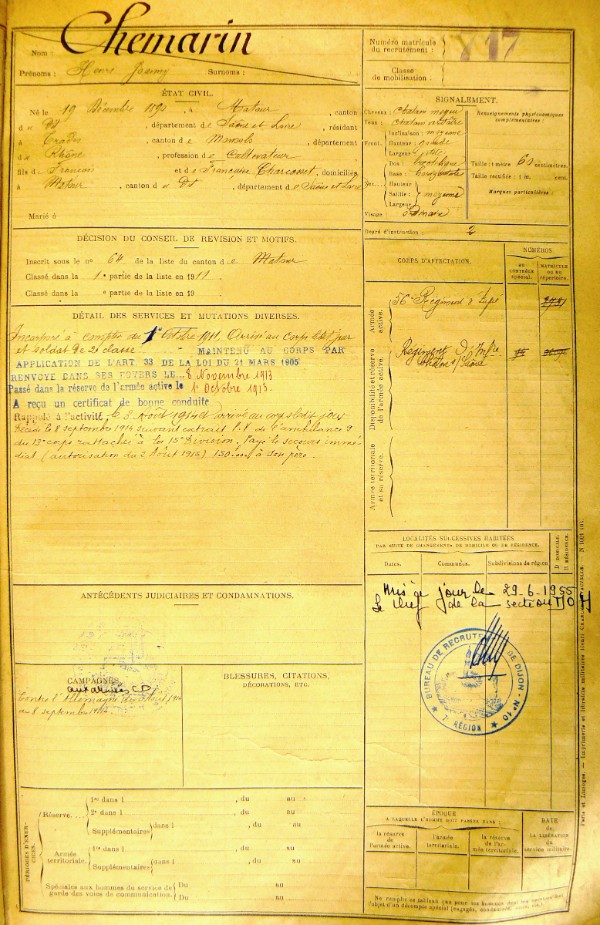 Nom :
Chemarin
Prénoms : Henri Joanny Surnoms :
ÉTAT CIVIL.
Né le 19 Décembre 1890, à Matour, canton
dudit, département de Saône et Loire, résidant
à Trades, canton de Monsols, département
du Rhône, profession de Cultivateur
fils de François et de Françoise Charcosset, domiciliés
à Matour, canton dudit, département de Saône et Loire
Marié à
DÉCISION DU CONSEIL DE REVISION ET MOTIFS.
Inscrit sous le n° 64 de la liste du canton de Matour
Classé dans la 1e partie de la liste en 1911
Classé dans la e partie de la liste en 19
DÉTAIL DES SERVICES ET MUTATIONS DIVERSES.
Incorporé à compter du 1er Octobre 1911. Arrivé au corps ledit jour
et soldat de 2e classe. MAINTENU AU CORPS PAR
APPLICATION DE L'ART. 33 DE LA LOI DU 21 MARS 1905
RENVOYÉ DANS SES FOYERS LE 8 Novembre 1913
Passé dans la réserve de l'armée active le 1er Octobre 1913.
A reçu un certificat de bonne conduite
Rappelé à l'activité, le 3 Août 1914 arrivé au corps ledit jour
Décédé le 8 septembre 1914 suivant extrait P.V. de l'ambulance 9
du 13e corps rattachée à la 15e Division. Payé le secours immé-
diat (autorisation du 2 Août 1914) 150 à son père.
ANTÉCÉDENTS JUDICIAIRES ET CONDAMNATIONS.
CAMPAGNES.
aux armées
Contre l'Allemagne du 3 Août 1914
au 8 septembre 1914
BLESSURES, CITATIONS,
DÉCORATIONS, ETC.
PÉRIODES D'EXERCICES.
Réserve
1re dans l , du au
2e dans l , du au
Supplémentaire dans l , du au
Armée territoriale.
1re dans l , du au
Supplémentaire dans l , du au
Spéciales aux hommes du service de
garde des voies de communication.
Du au
Du au
Numéro matricule
du recrutement :
Classe
de mobilisation :
SIGNALEMENT.
Cheveux : chatain moyen
Yeux :
Front
Inclinaison : moyenne
Hauteur : grande
Largeur :
Nez
Dos : rectiligne
Base : horizontale
Hauteur
Saillie : moyenne
Largeur
Visage
Renseignements physionomiques
complémentaires :
Taille : 1 mètre 60 centimètres.
Taille rectifiée : 1 m. cent.
Marques particulières :
Degré d'instruction : 2
CORPS D'AFFECTATION.
NUMÉROS
au contrôle spécial.
matricule ou au répertoire.
Armée active.
56e Régiment d'Infie
Disponibilité et réserve de l'armée active.
Régiment d'Infie
Armée territoriale et sa réserve.
LOCALITÉS SUCCESSIVES HABITÉES
PAR SUITE DE CHANGEMENTS DE DOMICILE OU DE RÉSIDENCE.
Dates. Communes. Subdivisions de région
D DOMICILE
R RÉSIDENCE.
Mis à jour le 29.6.1955
Le chef de la section
BUREAU DE RECRUTEMENT DE DIJON - N° 10
7e RÉGION
ÉPOQUE
À LAQUELLE L'HOMME DOIT PASSER DANS :
la réserve de l'armée active.
l'armée territoriale.
la réserve de l'armée territoriale.
DATE
DE LA LIBÉRATION
du service militaire.